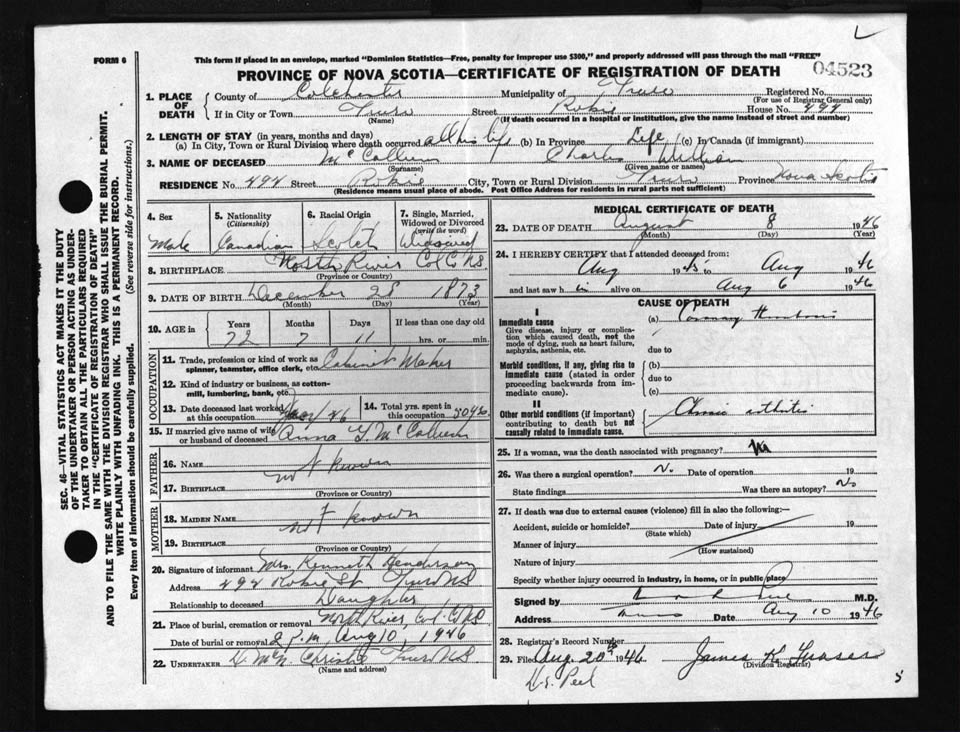 L
FORM 6
This form if placed in an envelope, marked "Dominion Statistics—Free, penalty for improper use $300," and properly addressed will pass through the mail "FREE"
PROVINCE OF NOVA SCOTIA—CERTIFICATE OF REGISTRATION OF DEATH
04523
SEC. 46—VITAL STATISTICS ACT MAKES IT THE DUTY
OF THE UNDERTAKER OR PERSON ACTING AS UNDER-
TAKER TO OBTAIN ALL THE PARTICULARS REQUIRED
IN THE "CERTIFICATE OF REGISTRATION OF DEATH"
AND TO FILE THE SAME WITH THE DIVISION REGISTRAR WHO SHALL ISSUE THE BURIAL PERMIT.
WRITE PLAINLY WITH UNFADING INK. THIS IS A PERMANENT RECORD.
Every item of information should be carefully supplied. (See reverse side for instructions.)
1. PLACE OF DEATH County of Colchester Municipality of Truro Registered No.
(For use of Registrar General only)
If in City or Town Truro Street Robie House No. 494
(Name) (If death occurred in a hospital or institution, give the name instead of street and number)
2. LENGTH OF STAY (in years, months and days)
(a) In City, Town or Rural Division where death occurred all his life (b) In Province Life (c) In Canada (if immigrant)
3. NAME OF DECEASED McCallum Charles William
(Surname) (Given name or names)
RESIDENCE No. 494 Street Robie City, Town or Rural Division Truro Province Nova Scotia
(Residence means usual place of abode. Post Office Address for residents in rural parts not sufficient)
4. Sex 5. Nationality (Citizenship) 6. Racial Origin 7. Single, Married, Widowed or Divorced (write the word)
Male Canadian Scotch Widowed
8. BIRTHPLACE North River Col. Co. N.S.
(Province or Country)
9. DATE OF BIRTH December 28 1873
(Month) (Day) (Year)
10. AGE in Years Months Days If less than one day old
72 7 11 hrs. or min.
OCCUPATION
11. Trade, profession or kind of work as spinner, teamster, office clerk, etc. Cabinet Maker
12. Kind of industry or business, as cotton-mill, lumbering, bank, etc.
13. Date deceased last worked at this occupation 46 14. Total yrs. spent in this occupation 50 yrs
15. If married give name of wife or husband of deceased Anna McCallum
FATHER
16. Name Not known
17. Birthplace
(Province or Country)
MOTHER
18. Maiden Name Not known
19. Birthplace
(Province or Country)
20. Signature of informant Mrs. Kenneth Henderson
Address 494 Robie St Truro NS
Relationship to deceased Daughter
21. Place of burial, cremation or removal North River, Col. Co. NS
Date of burial or removal 2 P.M. Aug 10, 1946
22. Undertaker Christie Truro NS
(Name and address)
MEDICAL CERTIFICATE OF DEATH
23. DATE OF DEATH August 8 1946
(Month) (Day) (Year)
24. I HEREBY CERTIFY that I attended deceased from:
Aug 1945 to Aug 1946
and last saw him alive on Aug 6 1946
CAUSE OF DEATH
I
Immediate cause (a) Coronary Thrombosis
Give disease, injury or complica-
tion which caused death, not the
mode of dying, such as heart failure,
asphyxia, asthenia, etc. due to
Morbid conditions, if any, giving rise to (b)
immediate cause (stated in order due to
proceeding backwards from im-
mediate cause). (c)
II
Other morbid conditions (if important) Chronic arthritis
contributing to death but not
causally related to immediate cause.
25. If a woman, was the death associated with pregnancy?
26. Was there a surgical operation? No Date of operation 19
State findings Was there an autopsy? No
27. If death was due to external causes (violence) fill in also the following:—
Accident, suicide or homicide? Date of injury 19
(State which)
Manner of injury
(How sustained)
Nature of injury
Specify whether injury occurred in industry, in home, or in public place
Signed by M.D.
Truro Date Aug 10 1946
28. Registrar's Record Number
29. Filed Aug. 20th 1946 James H. Fraser
(Division Registrar)
Peel